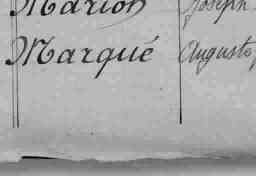 Marion Joseph
Marqué Auguste